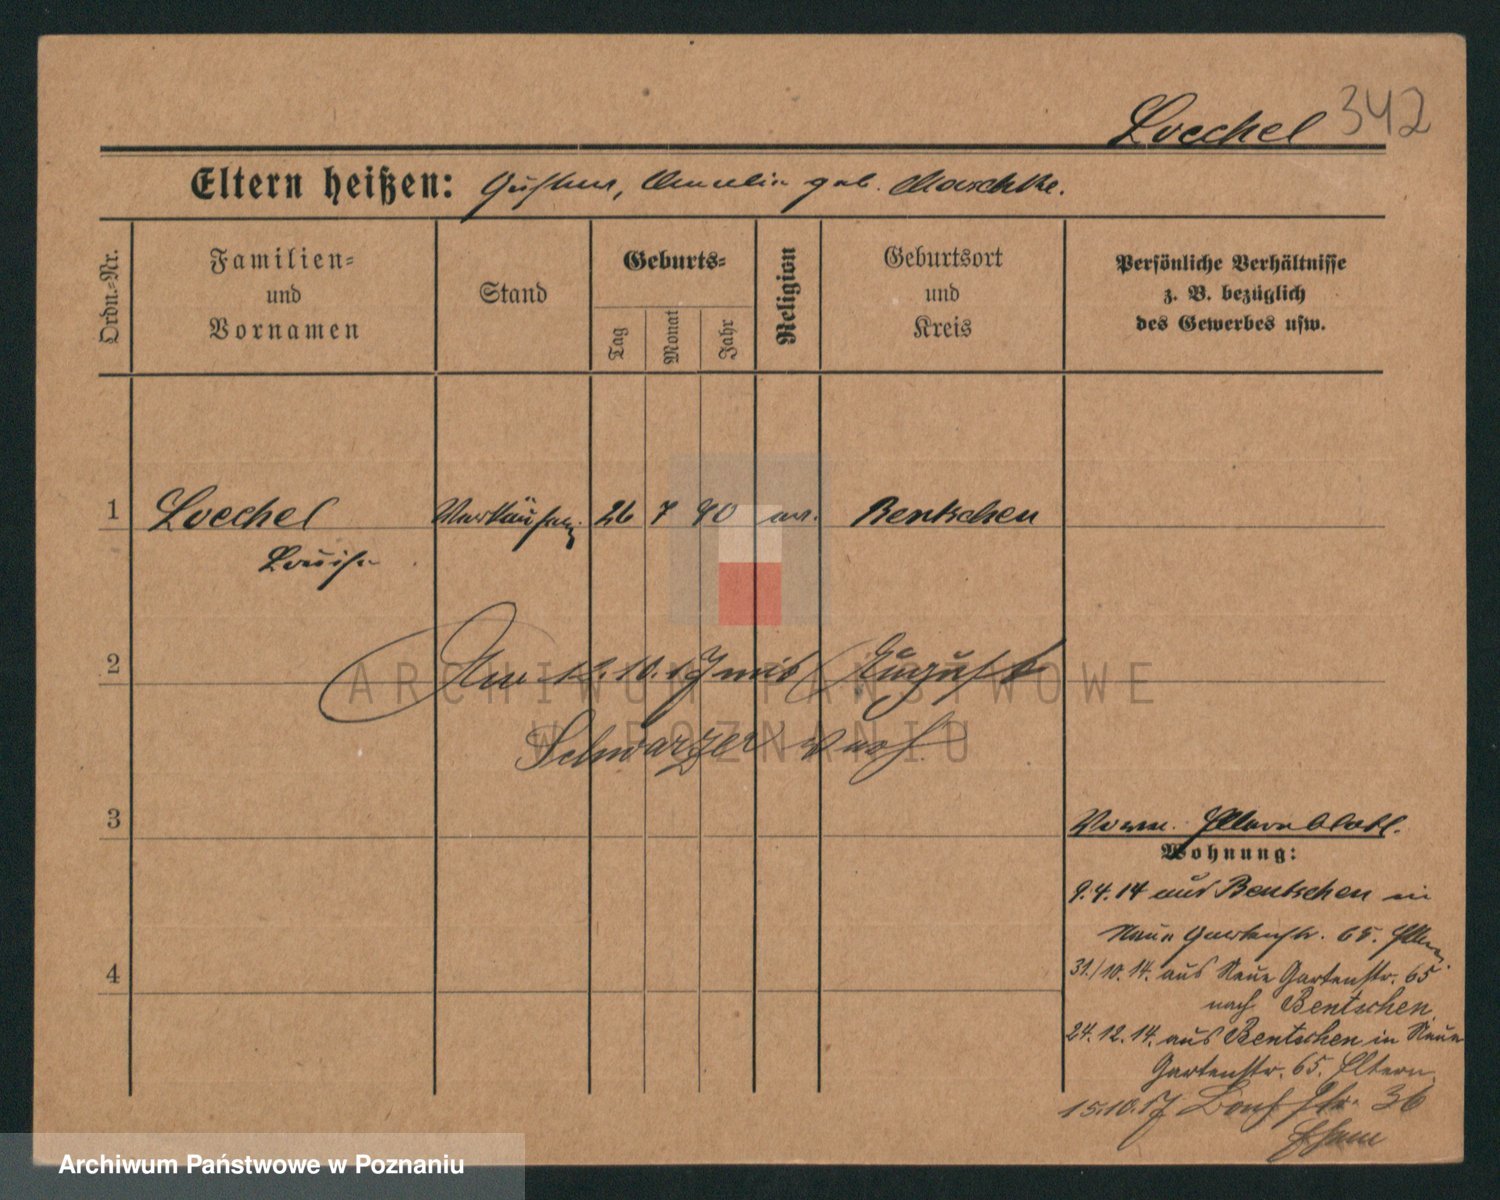 Loechel 342
Eltern heißen: Gustav, Amalie geb. Maschke.
Ordn.-Nr.
Familien-
und
Vornamen
Stand
Geburts-
Tag
Monat
Jahr
Religion
Geburtsort
und
Kreis
Persönliche Verhältnisse
z. B. bezüglich
des Gewerbes usw.
1 Loechel Verkäuferin 26 7 90 ev. Bentschen
Louise
2 Am 12.10.17 mit August
Schwarzer verh
ARCHIWUM PAŃSTWOWE
W POZNANIU
3
Elternblatt.
Wohnung:
9.4.14 aus Bentschen in
Neue Gartenstr. 65. Eltern
4
31./10.14. aus Neue Gartenstr. 65
nach Bentschen
24.12.14. aus Bentschen in Neue
Gartenstr. 65. Eltern
15.10.17 36
Archiwum Państwowe w Poznaniu